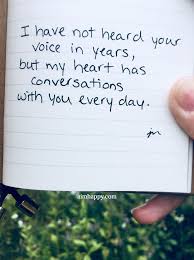 I have not heard your
voice in years,
but my heart has
conversations
with you every day.